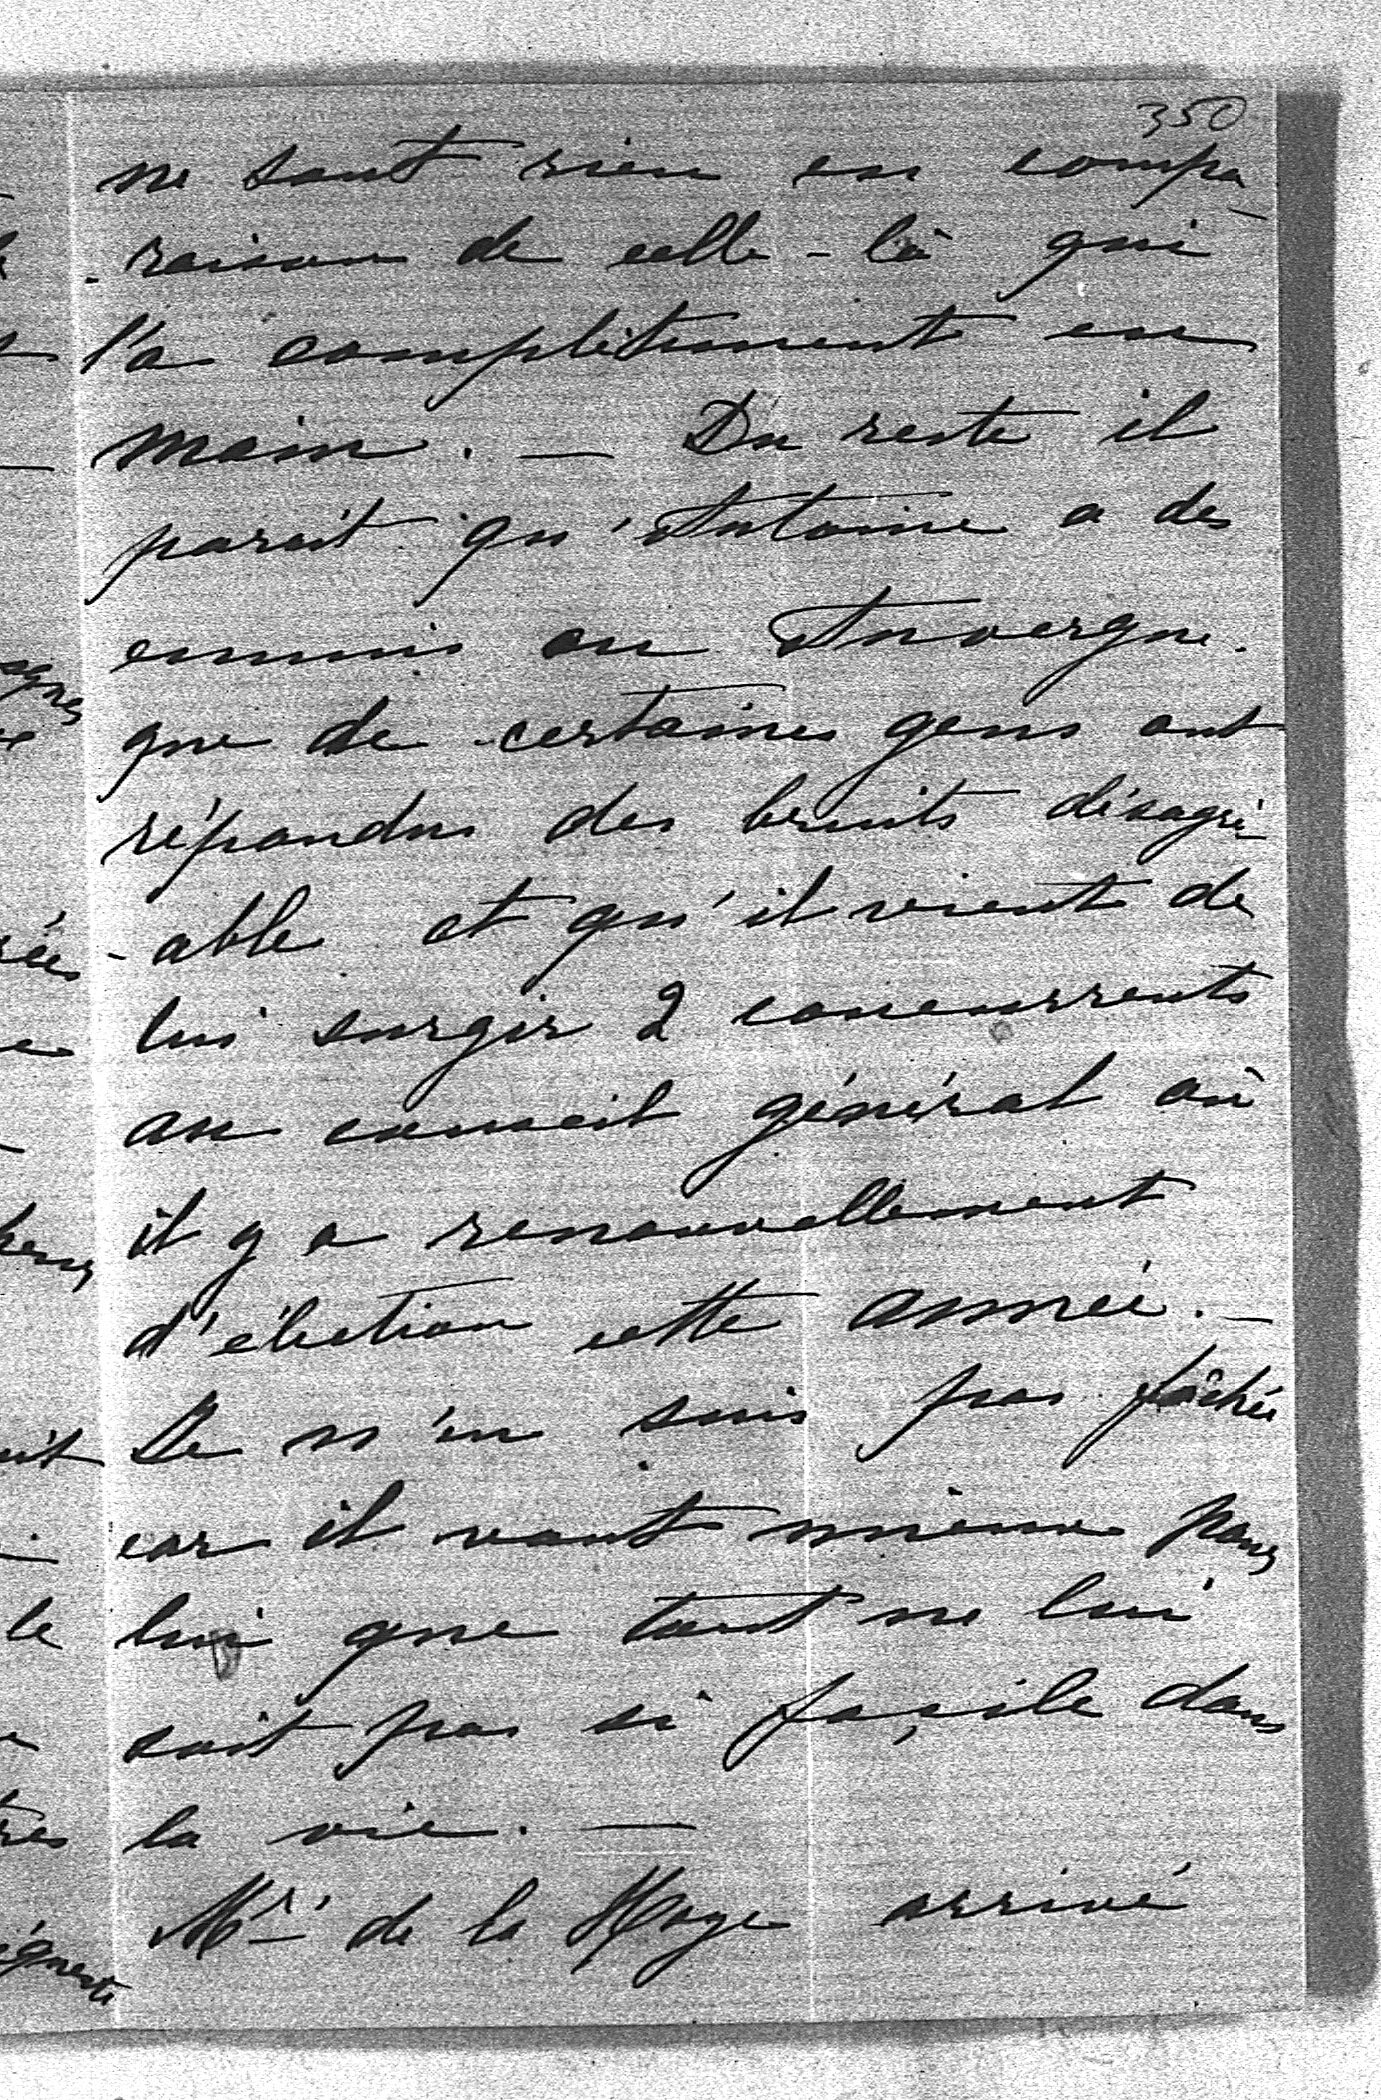 350
ne sont rien en compa-
-raison de celle-là qui
l'a complètement en
main. — Du reste il
parait qu'Antoine a des
ennemis en Auvergne.
que de certaines gens ont
répandus des bruits désagré-
-able et qu'il vient de
lui surgir 2 concurrents
au conseil général où
il y a renouvellement
d'élection cette année. —
Je n'en suis pas fâchée
car il vaut mieux pour
lui que tout ne lui
soit pas si façile dans
la vie. —
Mr de la Haye arrivé